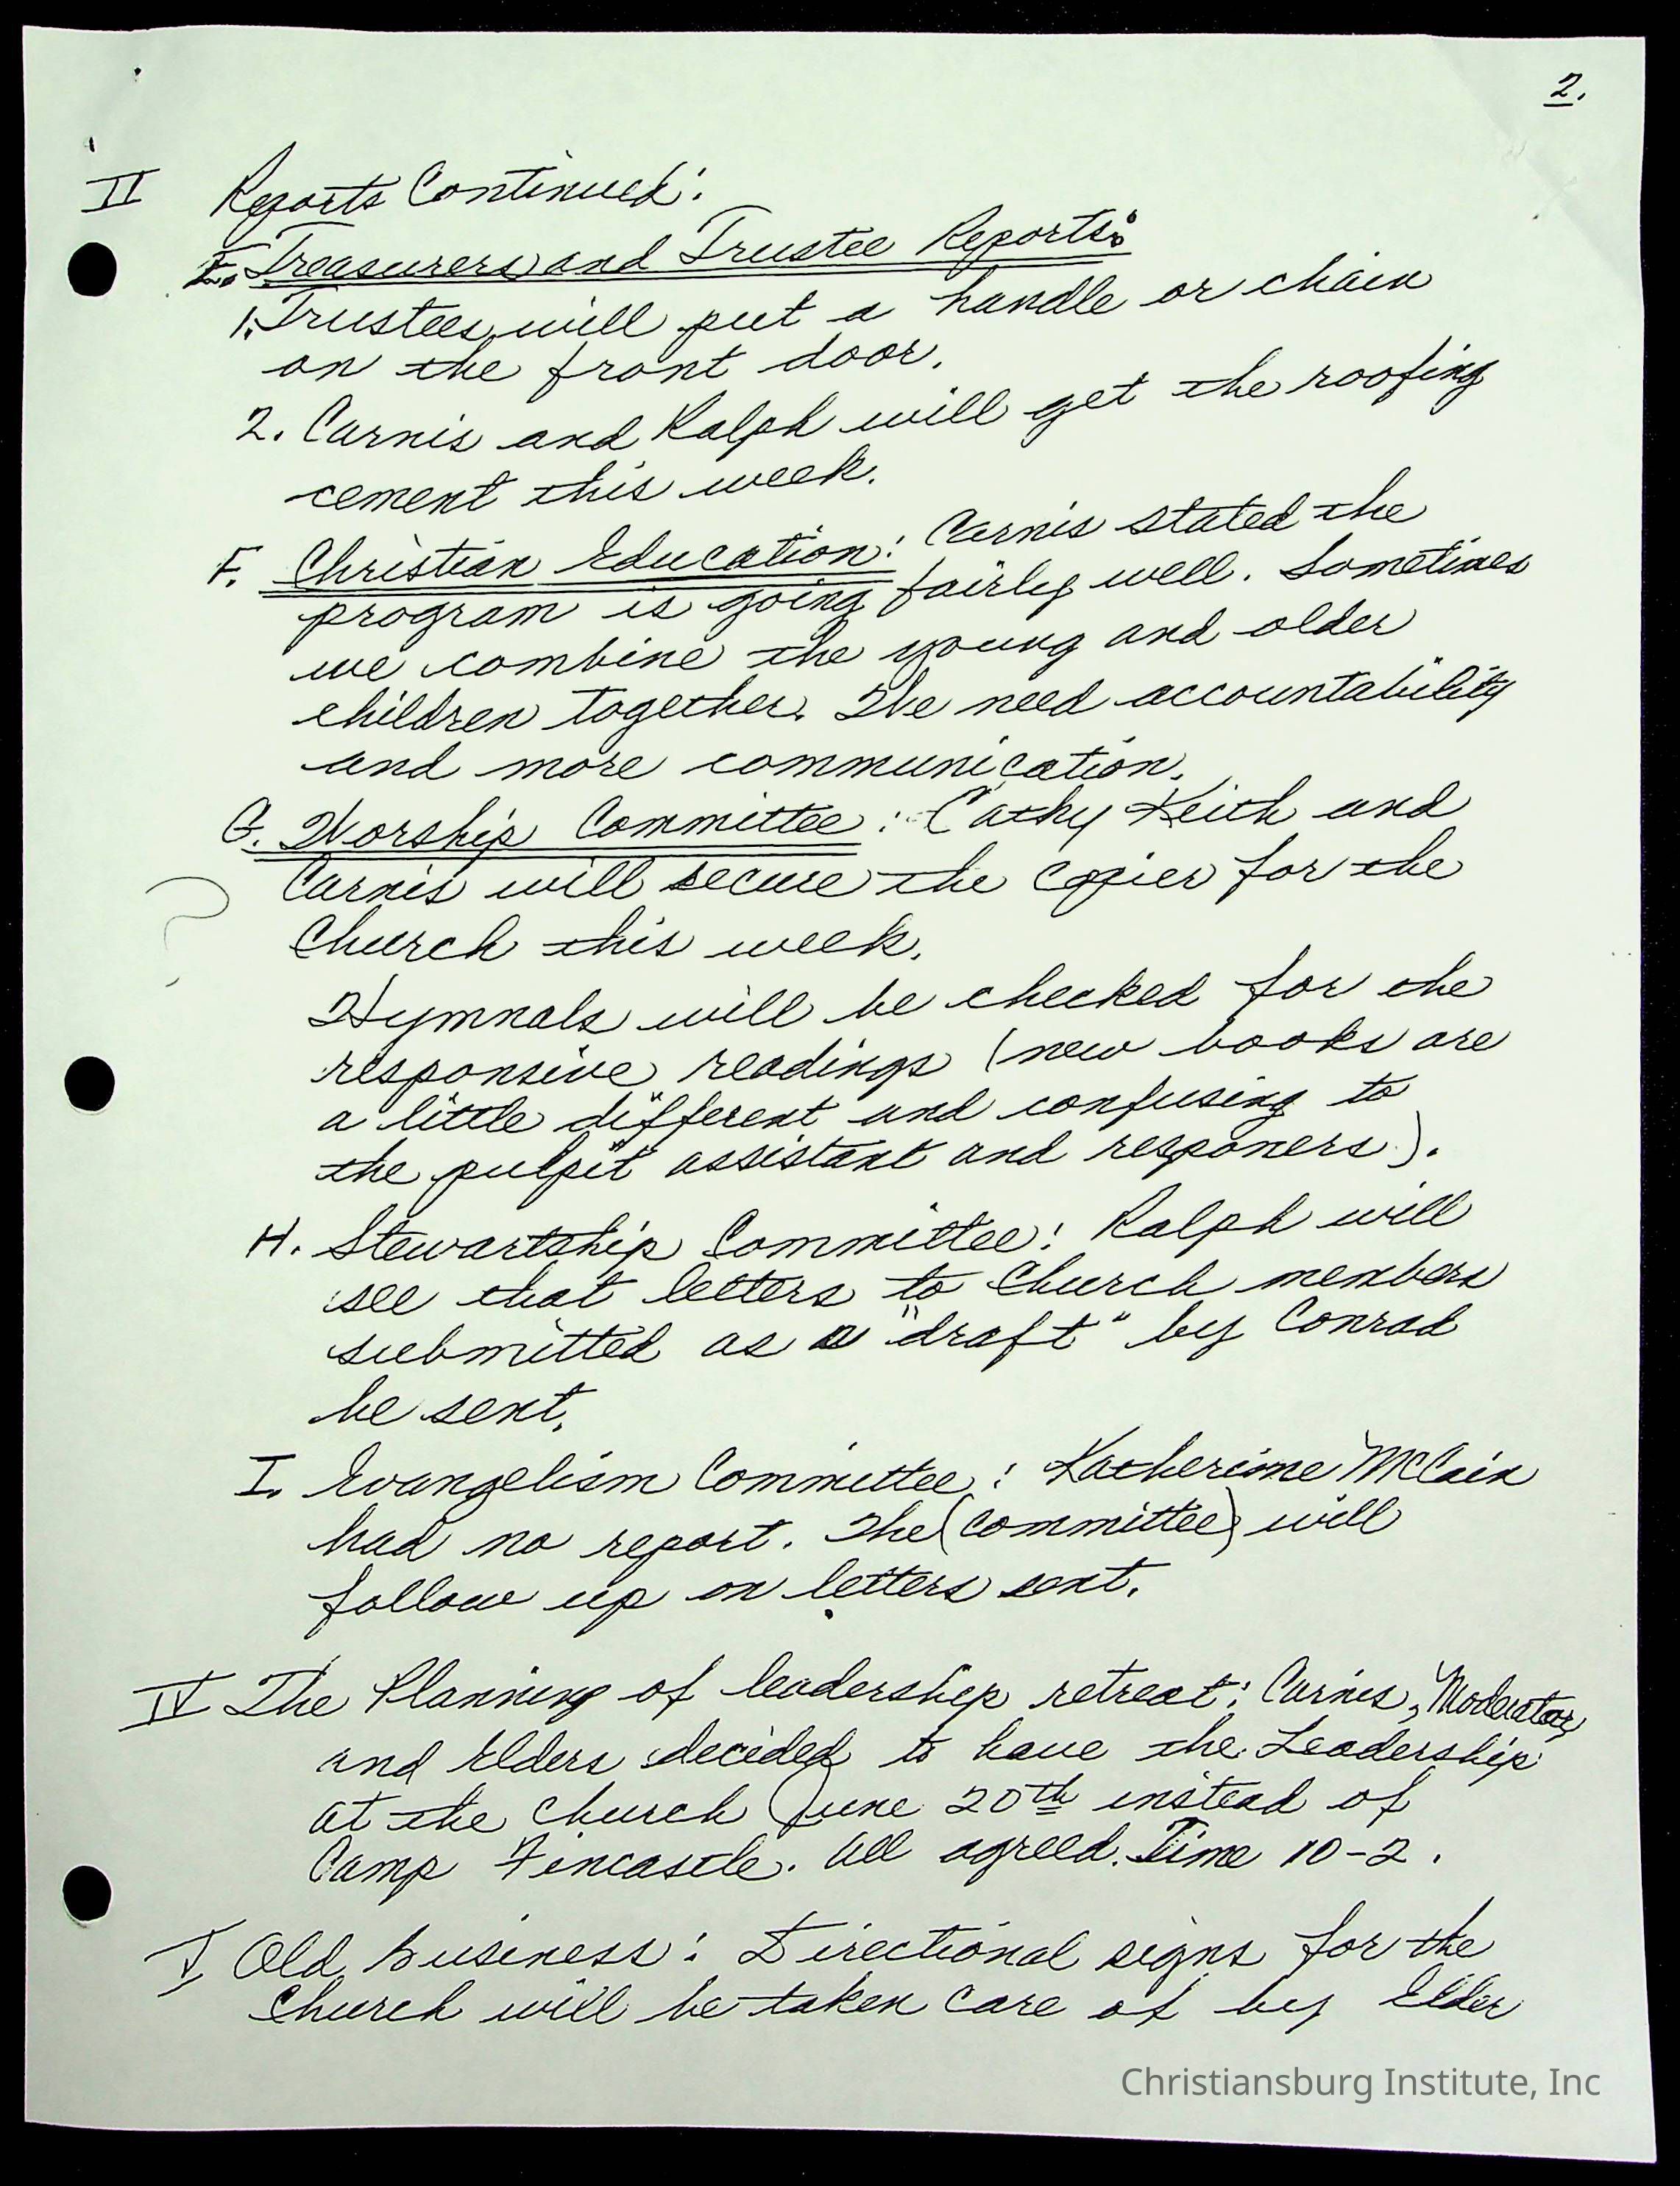 2.
II Reports Continued:
E. Treasurers and Trustee Reports:
1. Trustees will put a handle or chain
on the front door.
2. Carnis and Ralph will get the roofing
cement this week.
F. Christian Education: Carnis stated the
program is going fairly well. Sometimes
we combine the young and older
children together. We need accountability
and more communication.
G. Worship Committee: Cathy Keith and
Carnis will secure the copier for the
Church this week.
?
Hymnals will be checked for the
responsive readings (new books are
a little different and confusing to
the pulpit assistant and responers).
H. Stewartship Committee: Ralph will
see that letters to Church members
submitted as a "draft" by Conrad
be sent.
I. Evangelism Committee: Katherine McCain
had no report. The (committee) will
follow up on letters sent.
IV The Planning of leadership retreat: Carnis, Moderator,
and Elders decided to have the Leadership
at the Church June 20th instead of
Camp Fincastle. All agreed. Time 10-2.
V, Old business: Directional signs for the
Church will be taken care of by Elder
Christiansburg Institute, Inc